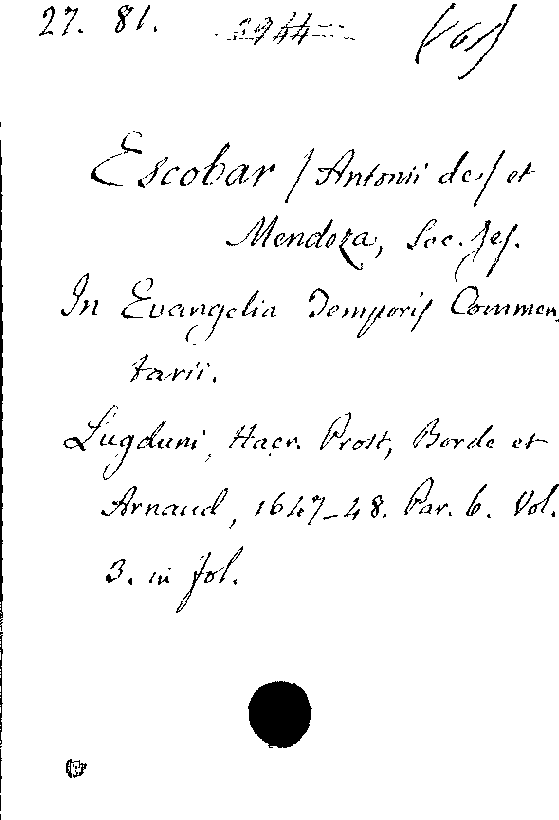 27. 81. 3944
Escobar /Antonii de/ et
Mendoza, Soc. Jes.
In Evangelia Temporis Commen
tarii.
Lugduni, Haer. Prost, Borde et
Arnaud, 1647-48. Par. 6. Vol.
3. in fol.